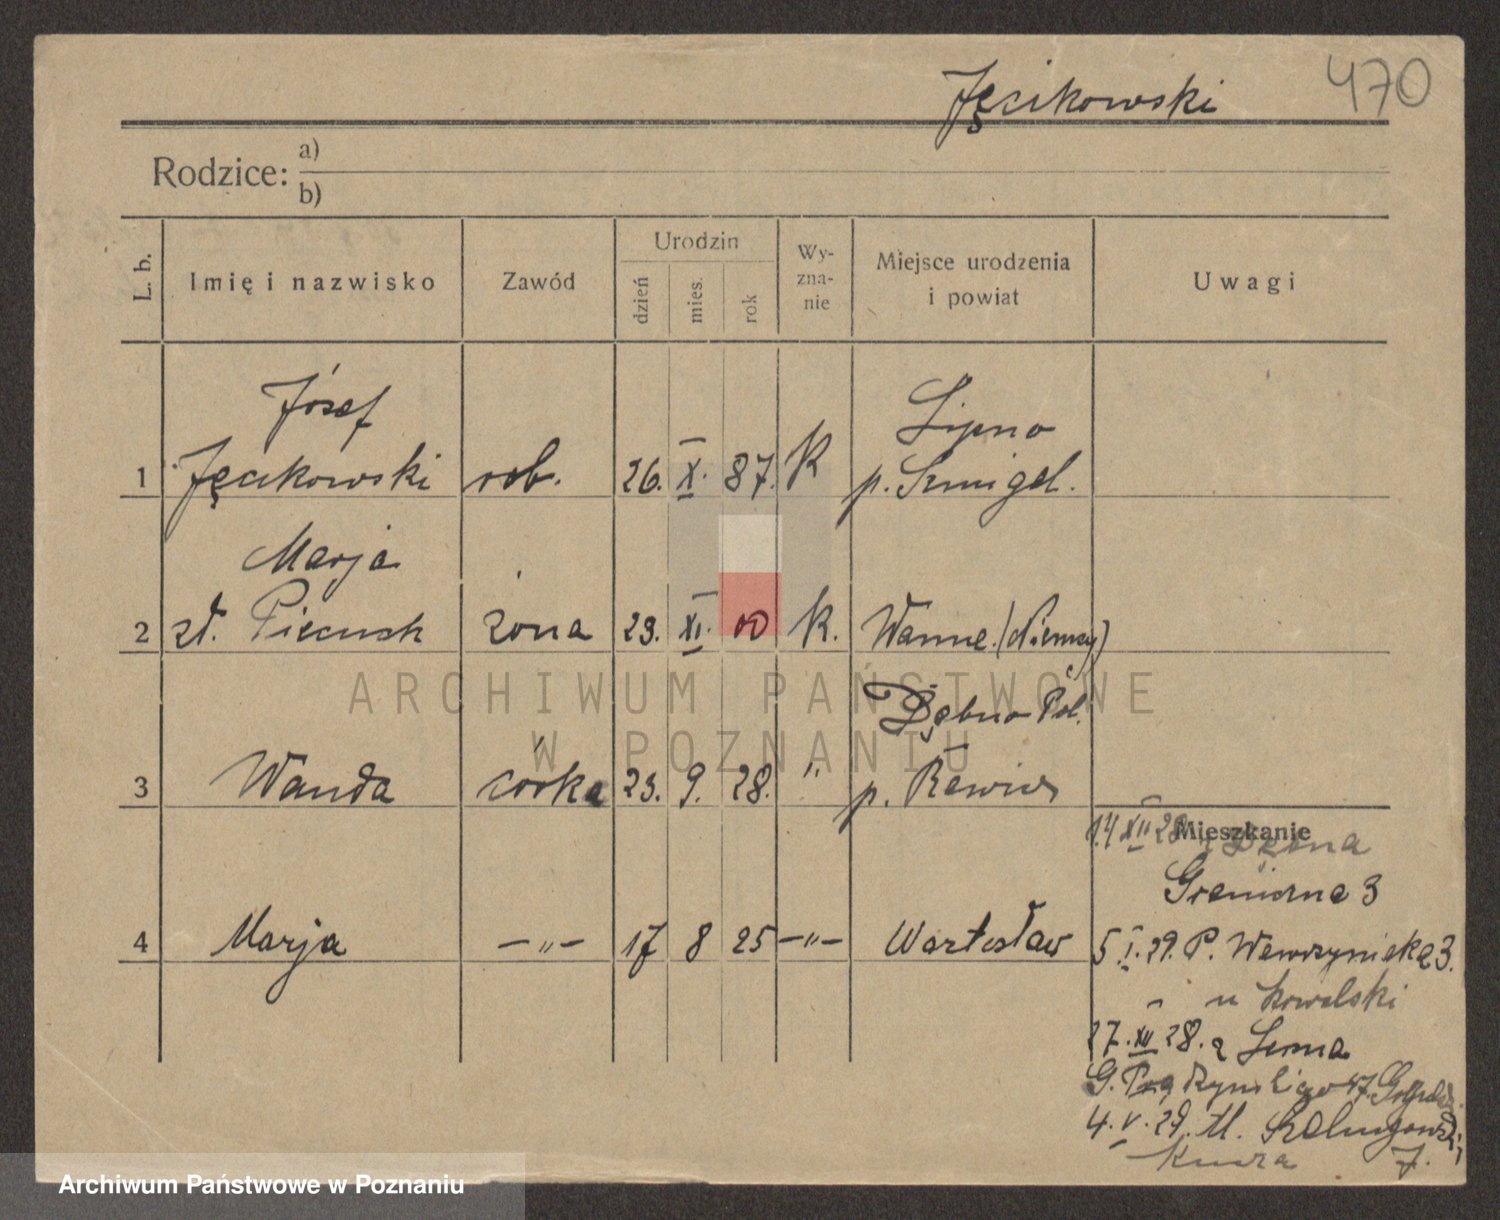 470
Jęcikowski
Rodzice:
a)
b)
L. b.
Imię i nazwisko
Zawód
Urodzin
dzień
mies.
rok
Wy-
zna-
nie
Miejsce urodzenia
i powiat
Uwagi
Józef
Lipno
1 Jęcikowski rob. 26. X. 87. K p. Szmigel.
Marja
2 zł. Piecuch żona 23. XI. 00 K. Wanne. (Niemcy)
ARCHIWUM PAŃSTWOWE
Dębno Pol.
W POZNANIU
3 Wanda córka 23. 9. 28. " p. Rawicz
14 XII 28 Mieszkanie
Graniczna 3
4 Marja —"— 17 8 25 —"— Wartosław
5 I. 29. P. Wawrzyniaka 3.
u Kowalski
27. XII 28. z
4. V. 29.
Archiwum Państwowe w Poznaniu